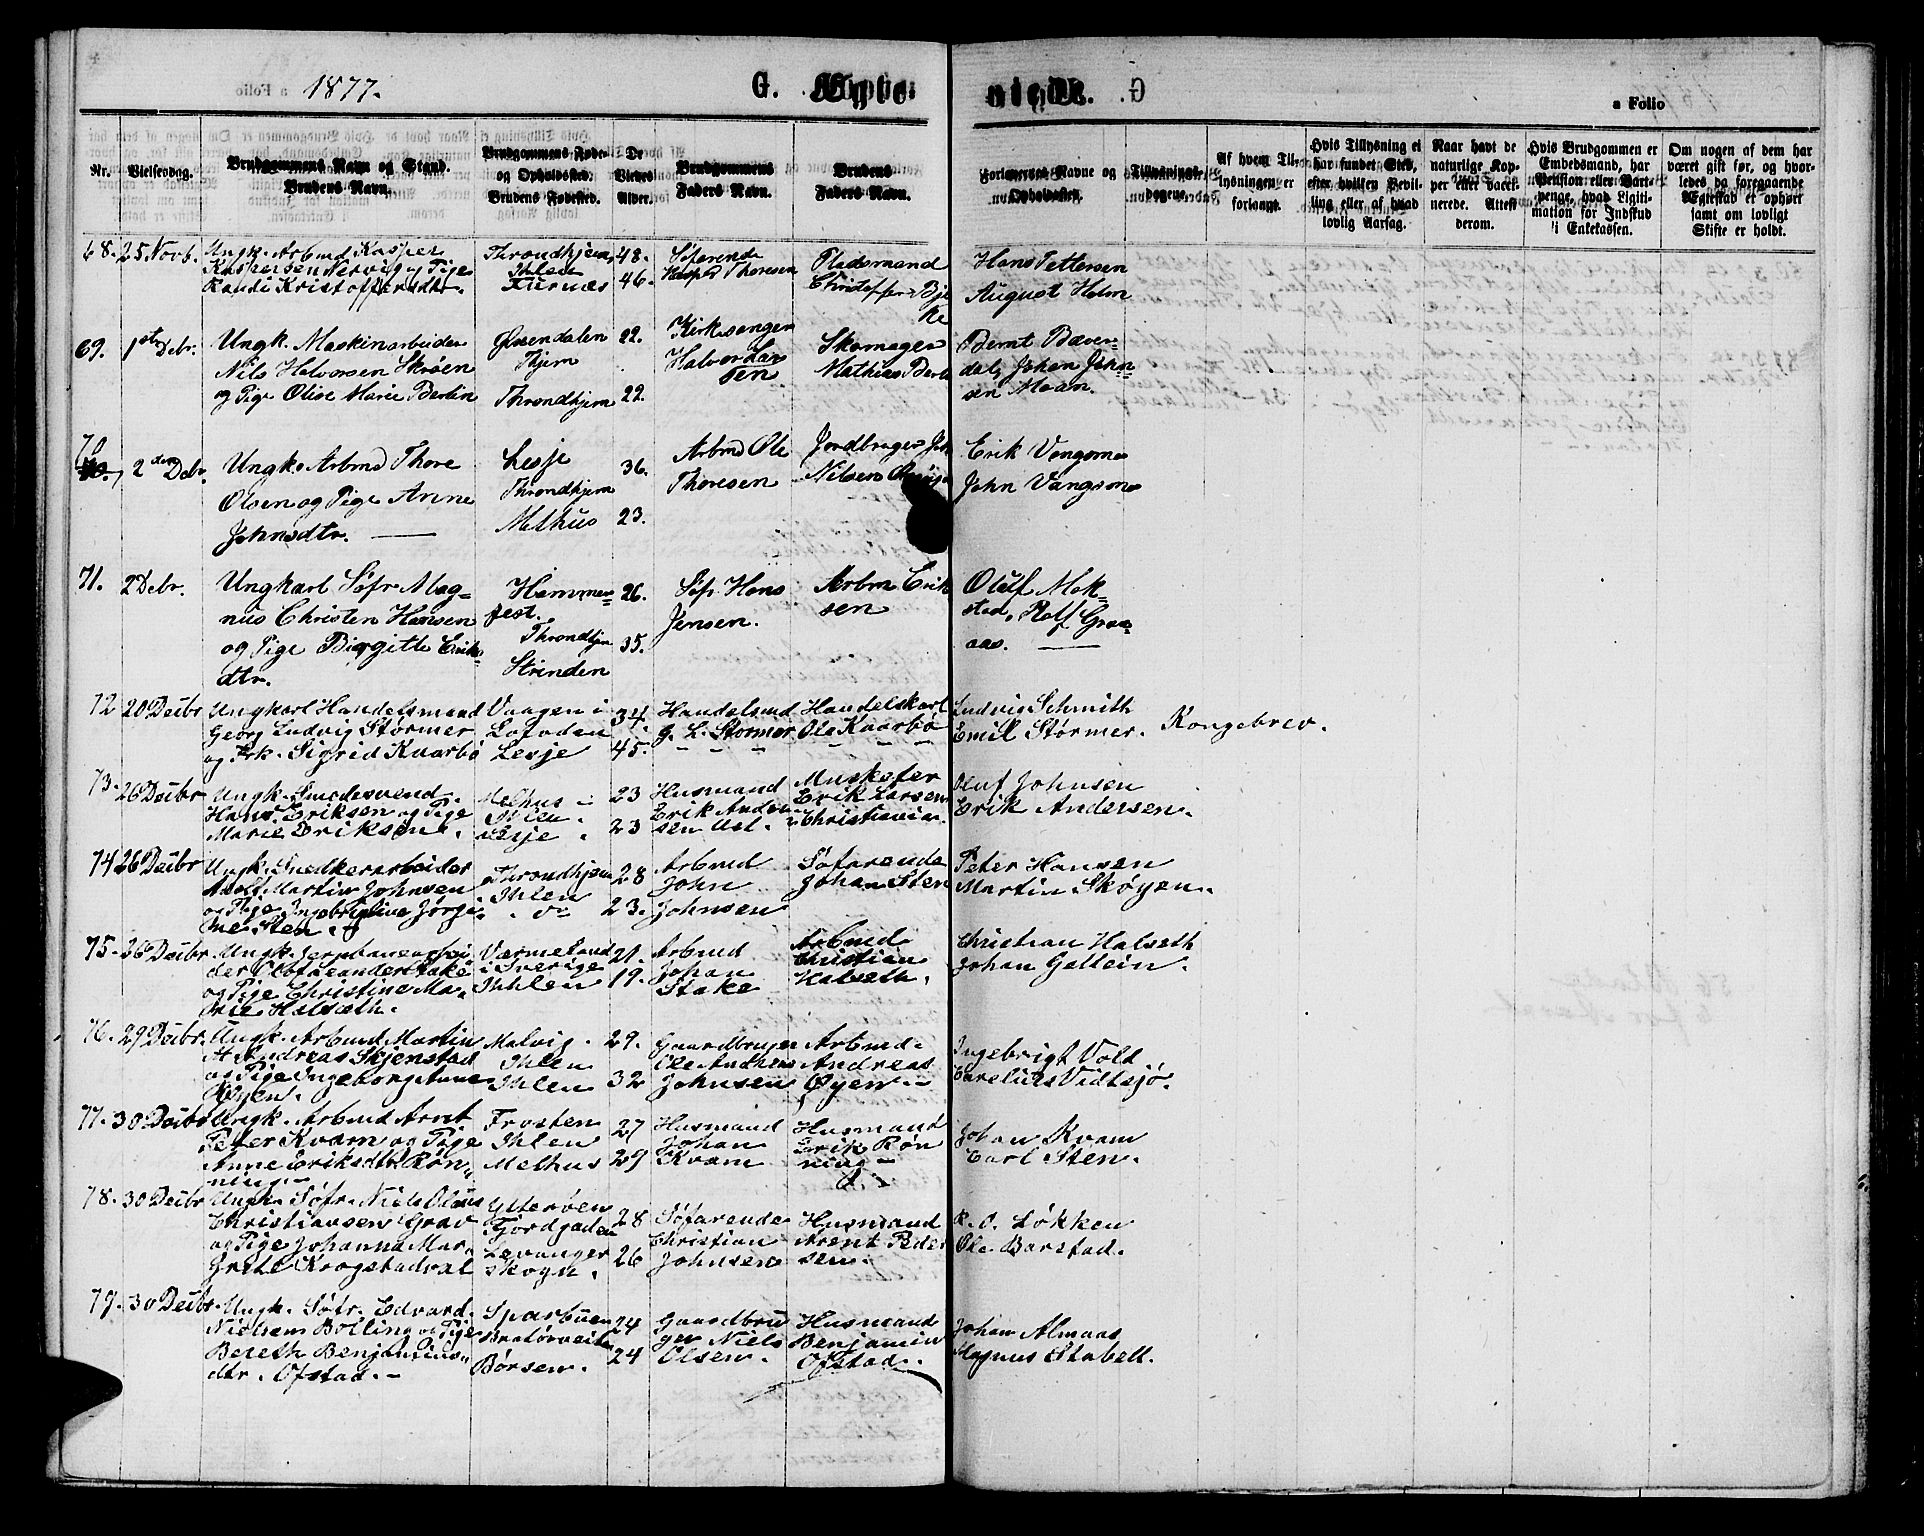 1877.
G.
a Folio
Nr.
Vielsesdag.
Brudgommens Navn og Stand. Brudens Navn.
Brudgommens Føde- og Opholdssted. Brudens Fødested.
De Viedes Alder.
Brudgommens Faders Navn.
Brudens Faders Navn.
Forlovernes Navne og Opholdssted.
Tillysnings-dagene.
Af hvem Tillysningen er forlangt.
Hvis Tillysning ei har fundet Sted, efter hvilken Bevilling eller af hvad lovlig Aarsag.
Naar havt de naturlige Kopper eller vaccinerede. Attest derom.
Hvis Brudgommen er Embedsmand, har Pension eller Vartpenge, hvad Ligitimation for Indskud i Enkekassen.
Om nogen af dem har været gift før, og hvorledes da foregaaende Ægtestad er ophørt samt om lovligt Skifte er holdt.
68. 25 Novb. Ungk. Arbmd Kasper Throndhjem, 48. Søfarende Pladsmand Hans Pettersen
Kaspersen Nervig og Pige Ihlen Kasper Thoresen Christoffer Bjerke August Holm
Randi Kristoffersdtr. 46.
69. 1ste Debr. Ungk. Maskinarbeider 22. Kirkesanger Skomager Bernt Bæver-
Nils Halvorsen Skrøen Halvor Mathias Berlin dal, Johan John-
og Pige Olise Marie Berlin Throndhjem 22. sen Moan.
70. 2den Debr. Ungk. Arbmd Thore Lesje 36. Arbmd Ole Jordbruger John Erik Vangsmo
Olsen og Pige Anne Throndhjem Thoresen Nilsen John Vangsmo
Johnsdtr. Melhus 23.
71. 2 Debr. Ungkarl Søfr. Mag- Hammer- 26. Søf. Hans Arbm Erik Oluf Mok-
nus Christen Hansen fest. Jensen. sen stad, Rolf Graa-
og Pige Birgitte Erik- Throndhjem 35. aas.
dtr. Strinden
72 20 Decbr Ungkarl Handelsmand Vaagen i 34. Handelsmd Handelskarl Ludvig Schmith
Georg Ludvig Størmer Lofoden G. L. Størmer Ole Kvarbø Emil Størmer. Kongebrev.
og Frk. Sigrid Kvarbø Lesje 45.
73. 26 Decbr Ungk. Smedesvend Melhus 23 Husmand Musketer Oluf Johnsen
Hans Eriksen og Pige Ihlen. Erik Ander- Erik Larsen Erik Andersen.
Marie Eriksen. Lesje. 23 sen Ust. Christiania.
74 26 Decbr Ungk. Snedkerarbeider Throndhjem 28 Arbmd Søfarende Peter Hansen
Adolf Martin Johnsen Ihlen John Johan Sten Martin Skøyen.
og Pige Ingebrigtine Jørgi- do 23. Johnsen
ne Sten.
75. 26 Decbr Ungk. Jernbanearbei- Værmeland 21. Arbmd Arbmd Christian Halseth
der Olof Leander Stake i Sverige Johan Christian Johan Gallein.
og Pige Christine Ma- Ihlen 19. Stake Halseth.
rie Halseth.
76. 29 Decbr. Ungk. Arbmd Martin Malvig. 29. Gaardbruger Arbmd Ingebrigt Vold
St. Andreas Skjenstad Ihlen Ole Andreas Andreas Carelius Vidtsjø.
og Pige Ingeborg Anne Ihlen 32 Johnsen Øyen
Øyen.
77. 30 Decbr Ungk. Arbmd Arnt Frosten 27 Husmand Husmand Johan Kvam
Peter Kvam og Pige Ihlen Johan Erik Røn Carl Sten.
Anne Eriksdtr Røn- Melhus 29 Kvam ning
ning.
78. 30 Decbr Ungk. Søfr. Niels Olaus Ytterøen 28 Søfarende Husmand R. O. Løkken
Christiansen Grav Fjordgaden Christian Arent Peder Ole Barstad.
og Pige Johanna Mar- Levanger 26 Johnsen sen.
grete Krogstadval Skogn.
79. 30 Decbr. Ungk. Søfr. Edvard Sparbuen 24 Gaardbru Husmand Johan Almaas
Nielsen Bolling og Pige Bratørveiten ger Niels Benjamin Magnus Stabell.
Bereth Benjamins- Børsen. 24 Olsen. Ofstad.
dtr. Ofstad.